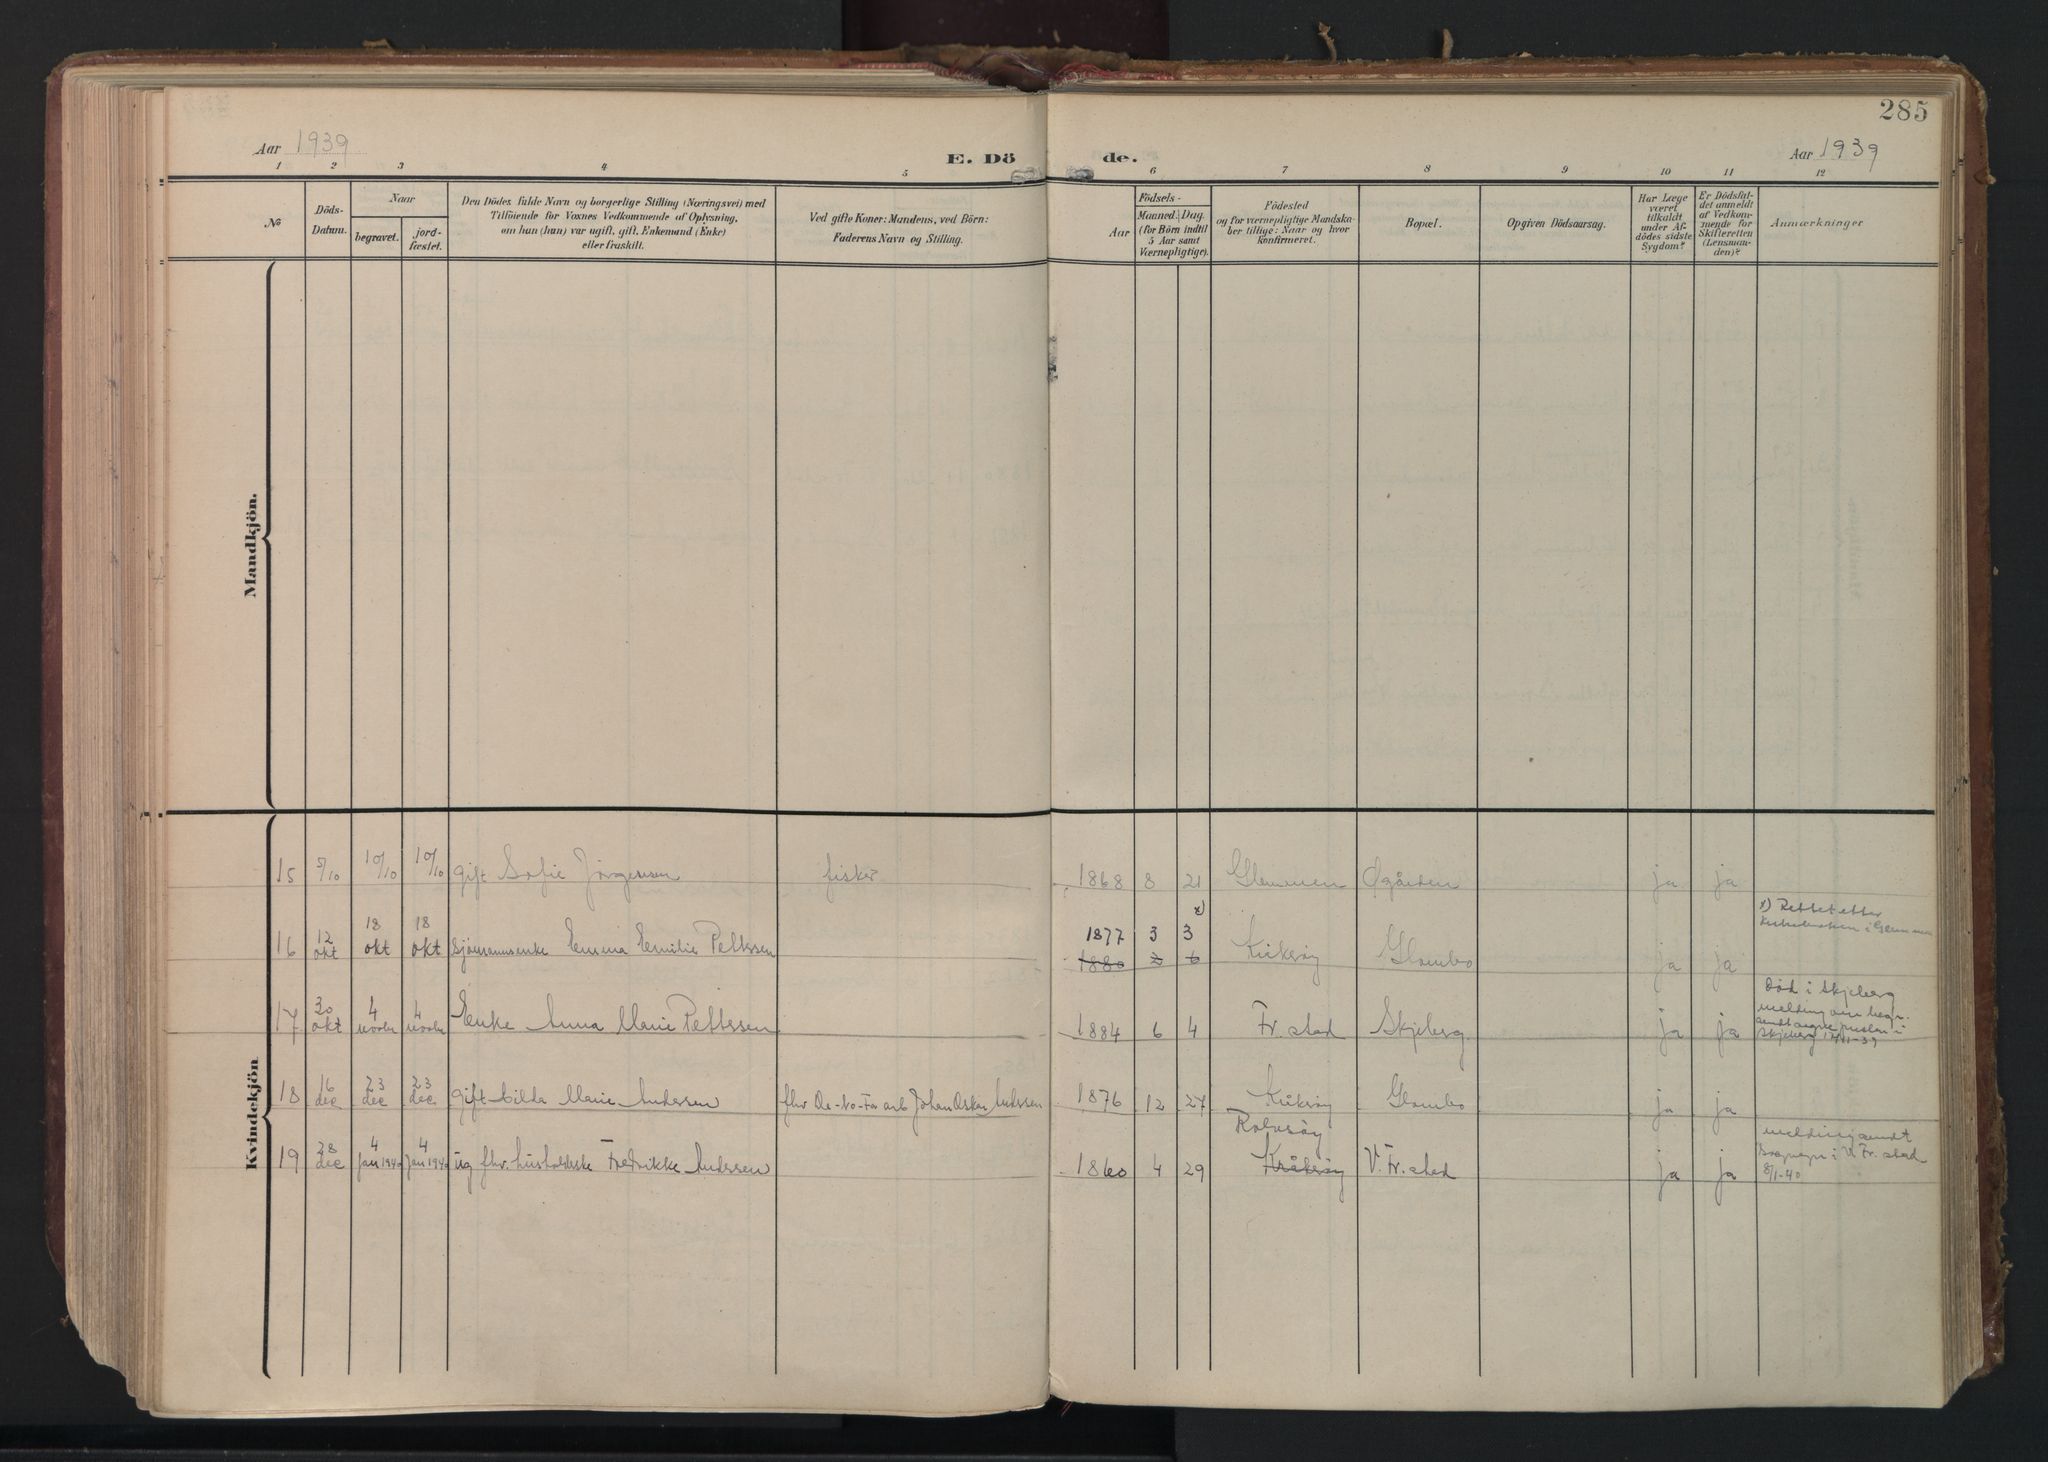 285
Aar 1939
E. Dö
de.
Aar 1939
1 2 3 4 5 6 7 8 9 10 11 12
No
Döds-
Datum.
Naar
begravet.
jord-
fæstet.
Den Dödes fulde Navn og borgerlige Stilling (Næringsvei) med
Tilföiende for Voxnes Vedkommende af Oplysning,
om han (hun) var ugift, gift, Enkemand (Enke)
eller fraskilt.
Ved gifte Koner: Mandens, ved Börn:
Faderens Navn og Stilling.
Födsels-
Aar
Maaned. Dag.
(for Börn indtil
5 Aar samt
Værnepligtige).
Födested
og for værnepligtige Mandska-
ber tillige: Naar og hvor
konfirmeret.
Bopæl.
Opgiven Dödsaarsag.
Har Læge
været
tilkaldt
under Af-
dödes sidste
Sygdom?
Er Dödsfal-
det anmeldt
af Vedkom-
mende for
Skifteretten
(Lensman-
den)?
Anmærkninger
Mandkjön.
Kvindekjön
15 5/10 10/10 10/10 gift Sofie Jörgensen fisker 1868 8 21 Glemmen Øgården ja ja
x) x) Rettet etter
i Glemmen
16 12 okt 18 okt 18 okt sjömannsenke Emma Emilie Pettersen 1877 3 3 Kråkerøy Glombo ja ja
1880
17 30 okt 4 novbr 4 novbr Enke Anna Marie Pettersen 1884 6 4 Fr.stad Skjeberg ja ja
Død i Skjeberg
melding om begr.
sendt sognepresten i
Skjeberg
18 16 dec 23 dec 23 dec gift Hilda Marie Andersen fhv Johan Oskar Andersen 1876 12 27 Kråkerøy Glombo ja ja
Rolvsøy
19 28 dec 4 Jan 1940 4 Jan 1940 ug fhv. husholderske Fredrikke Andersen 1860 4 29 Kråkerøy V. Fr.stad ja ja
melding sendt
Sognepr i V. Fr.stad
8/1-40